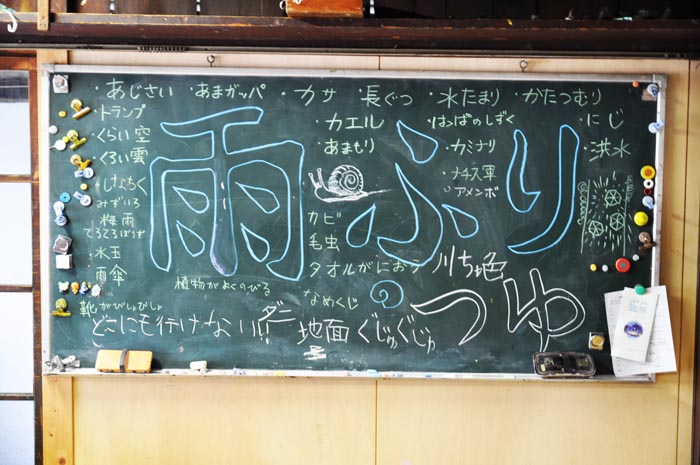 ・あじさい ・あまガッパ ・カサ ・長ぐつ ・水たまり ・かたつむり
・トランプ
・カエル ・はっぱのしずく ・にじ
・くらい空
・あまもり ・カミナリ ・洪水
・くろい雲
・ナチス軍
・アメンボ
みずいろ
梅雨
てるてるぼうず
水玉
雨傘
雨ふり
カビ
毛虫
タオルがにおう
なめくじ
川ちゃ色
植物がよくのびる
靴がびしょびしょ
ダニ
どこにも行けない!!
地面ぐじゅぐじゅ
つゆ